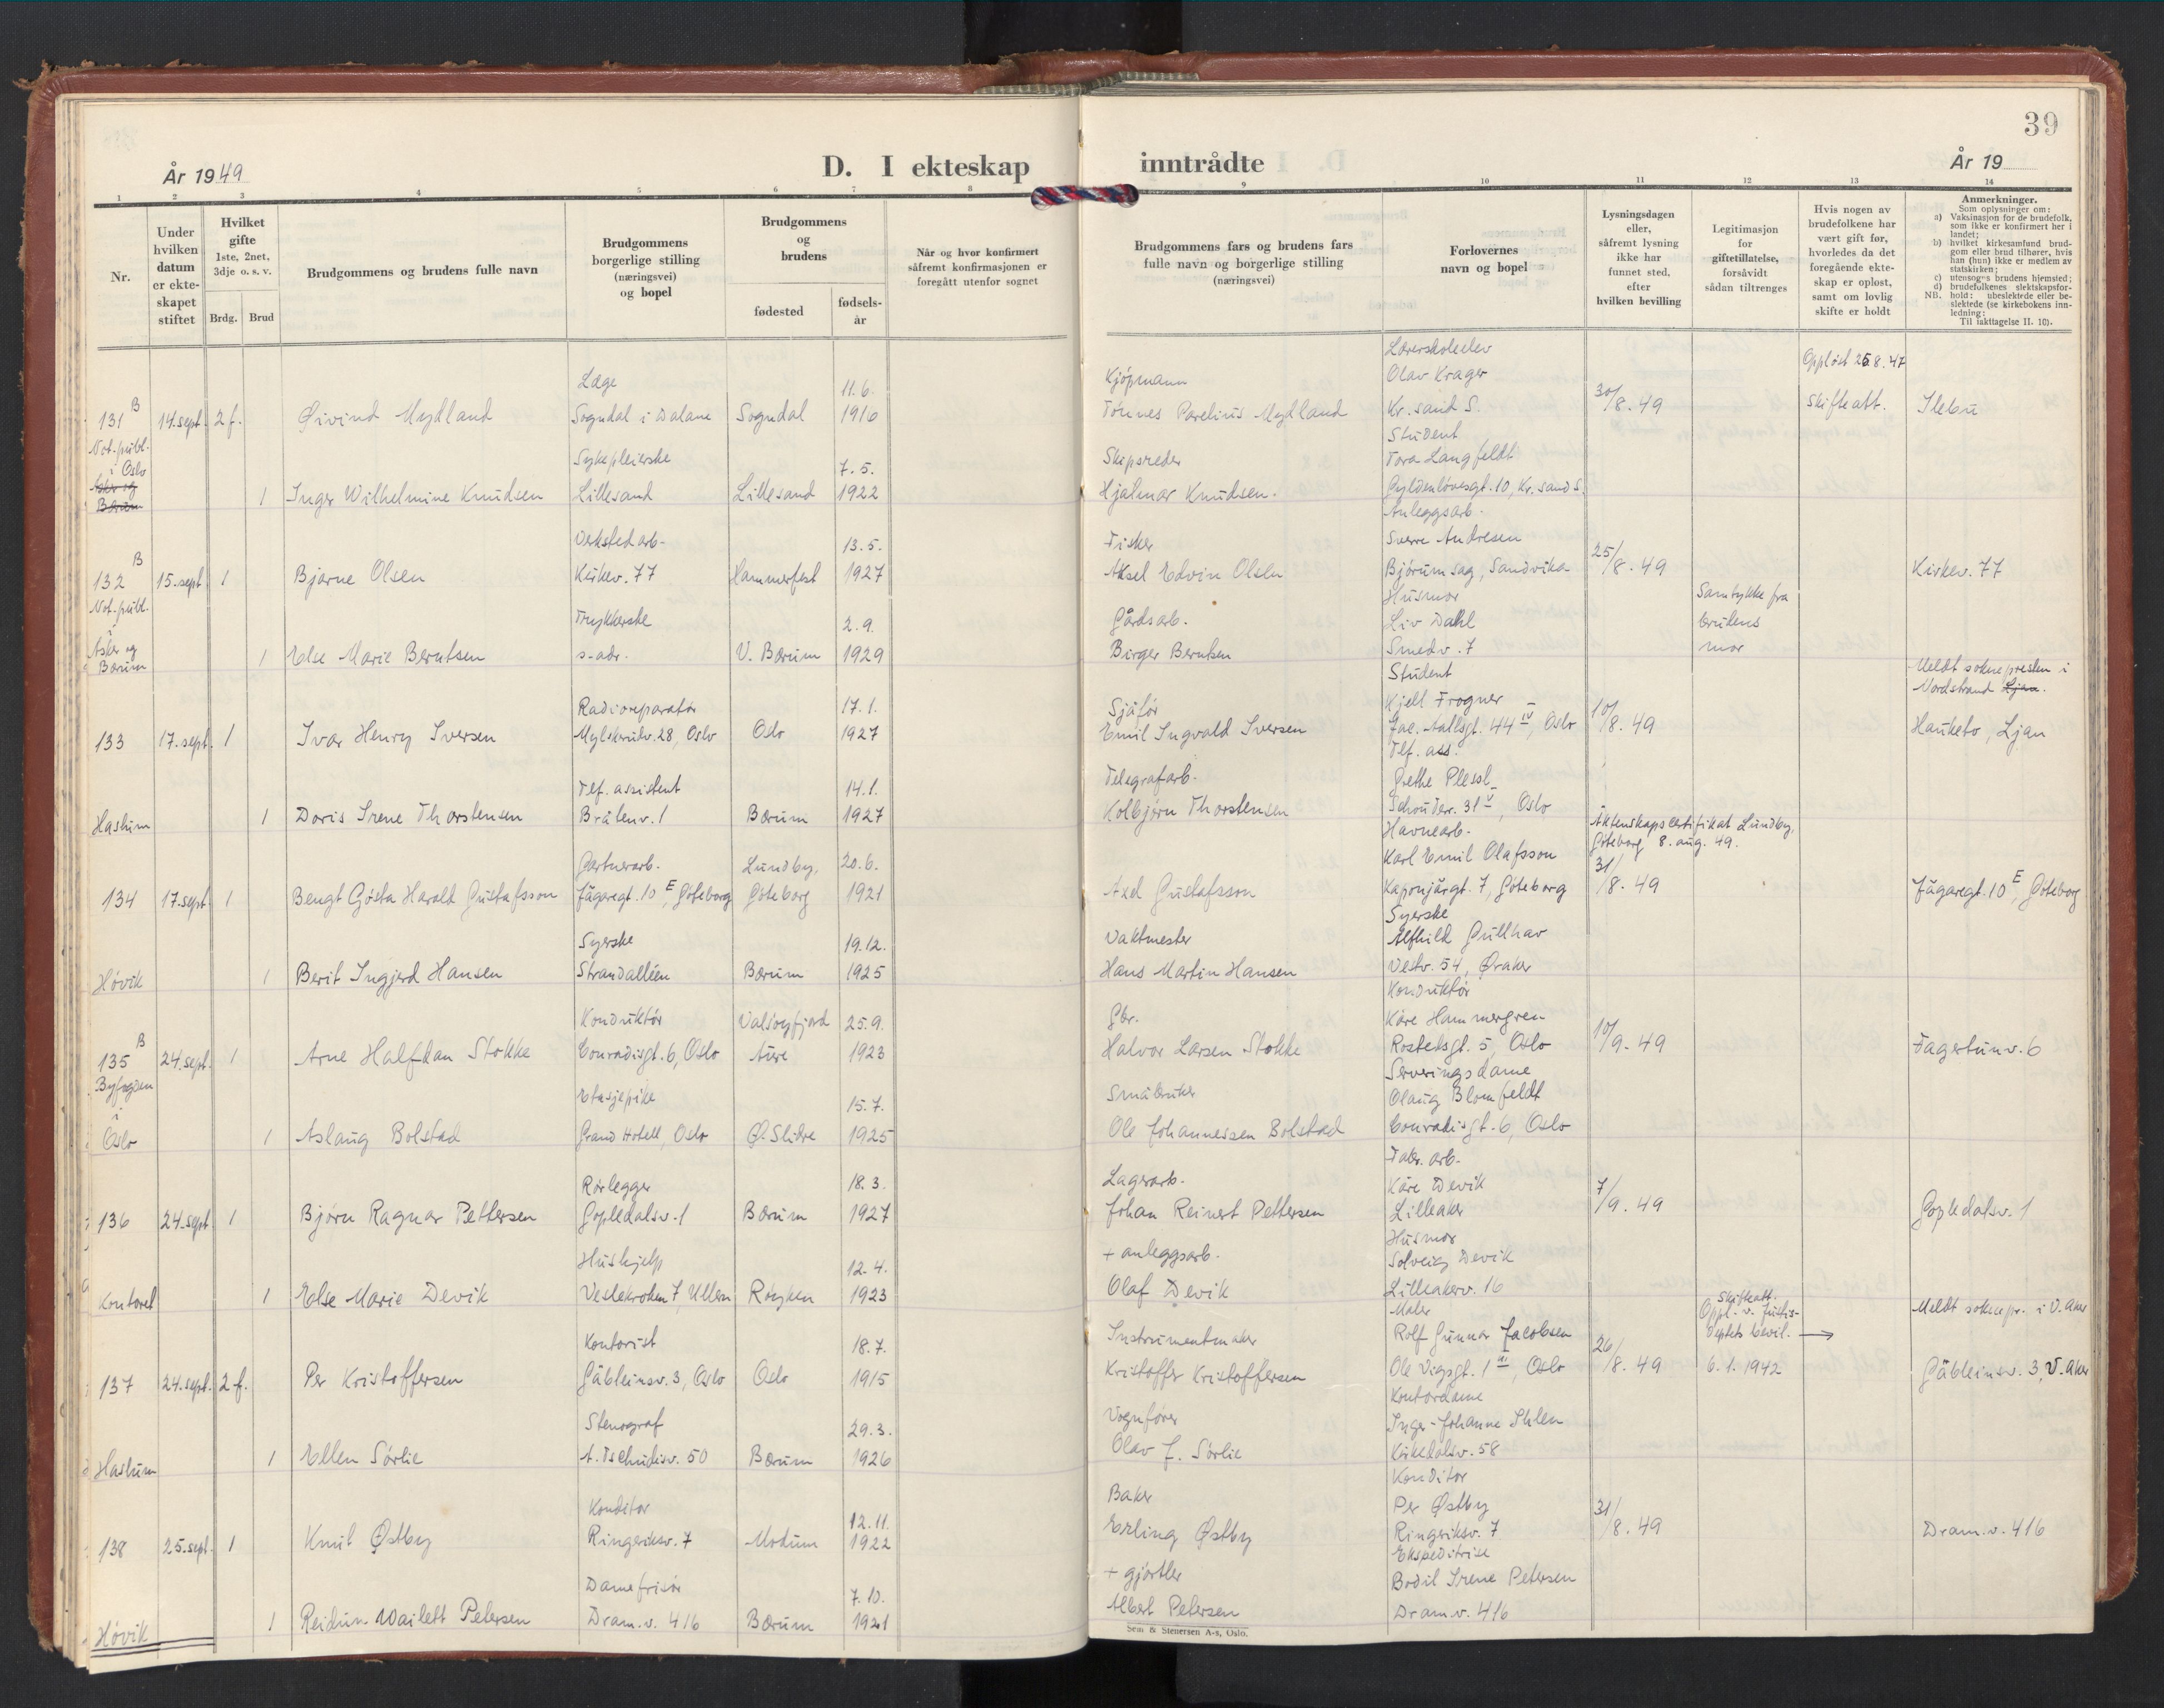 39
År 1949
D. I ekteskap
inntrådte
År 19
1 2 3 4 5 6 7 8 9 10 11 12 13 14
Nr.
Under hvilken datum er ekteskapet stiftet
Hvilket gifte 1ste, 2net, 3dje o. s. v.
Brdg. Brud
Brudgommens og brudens fulle navn
Brudgommens borgerlige stilling (næringsvei) og bopel
Brudgommens og brudens
fødested
fødsels-år
Når og hvor konfirmert såfremt konfirmasjonen er foregått utenfor sognet
Brudgommens fars og brudens fars fulle navn og borgerlige stilling (næringsvei)
Forlovernes navn og bopel
Lysningsdagen eller, såfremt lysning ikke har funnet sted, efter hvilken bevilling
Legitimasjon for giftetillatelse, forsåvidt sådan tiltrenges
Hvis nogen av brudefolkene har vært gift før, hvorledes da det foregående ekteskap er opløst, samt om lovlig skifte er holdt
Anmerkninger.
Som oplysninger om:
a) Vaksinasjon for de brudefolk, som ikke er konfirmert her i landet;
b) hvilket kirkesamfund brudgom eller brud tilhører, hvis han (hun) ikke er medlem av statskirken;
c) utensogns brudens hjemsted;
d) brudefolkenes slektskapsforhold: ubeslektede eller beslektede (se kirkebokens innledning:
NB. Til iakttagelse II. 10).
Lærerskoleelev
Læge 11.6. Kjøpmann Olav Krager Oppløst 25.8.47
131 B 14.sept. 2 f. Øivind Mydland Sogndal i Dalane Sogndal 1916 Tønnes Parelius Mydland Kr.sand S. 30/8.49 Skifteatt. Ilebu
Not.publ. i Oslo
Student
Sykepleierske 7.5. Skipsreder Tora Langfeldt
Asker og Bærum 1 Inger Wilhelmine Knudsen Lillesand Lillesand 1922 Hjalmar Knudsen. Gyldenløvesgt.10, Kr.sand S.
Anleggsarb.
Verkstedarb. 13.5. Fisker Sverre Andresen
132 B 15.sept. 1 Bjarne Olsen Kirkev.77 Hammerfest 1927 Aksel Edvin Olsen Bjørum sag, Sandvika 25/8.49 Kirkev. 77
Not.publ. i
Husmor Samtykke fra
Trykkerske 2.9. Gårdsarb. Liv Dahl brudens
Asker og Bærum 1 Else Marie Berntsen s.adr. V. Bærum 1929 Birger Berntsen Smedv.7 mor
Student Meldt soknepresten i
Radioreparatør 17.1. Sjåfør Kjell Frogner Nordstrand Ljan.
133 17.sept. 1 Ivar Henry Iversen 28, Oslo Oslo 1927 Emil Ingvald Iversen Jac. Aallsgt. 44 IV, Oslo 10/8.49 Hauketo, Ljan
Tlf. ass.
Tlf. assistent 14.1. Telegrafarb. Grethe Plessl
Haslum 1 Doris Irene Thorstensen Bråtenv.1 Bærum 1927 Kolbjørn Thorstensen 31 V, Oslo
Havnearb. Äktenskapscertifikat Lundby,
Gartnerarb. Lundby, 20.6. Karl Emil Olafsson Göteborg 8. aug. 49.
134 17.sept. 1 Bengt Gösta Harald Gustafsson Jägaregt.10 E, Göteborg Göteborg 1921 Axel Gustafsson Kaponjärgt.7, Göteborg 31/8.49 Jägaregt.10 E, Göteborg
Syerske
Syerske 19.12. Vaktmester Alfhild Gullhav
Høvik 1 Berit Ingjerd Hansen Strandalléen Bærum 1925 Hans Martin Hansen Vestv.54, Øraker
Konduktør
Konduktør Valsøyfjord 25.9. Gbr. Kåre Hammergren
135 B 24.sept. 1 Arne Halfdan Stokke Conradisgt.6, Oslo Aure 1923 Halvor Larsen Stokke Rostedsgt. 5, Oslo 10/9.49 Fagertunv.6
Byfogden i
Serveringsdame
Etasjepike 15.7. Småbruker Olaug Blomfeldt
Oslo 1 Aslaug Bolstad Grand Hotell, Oslo Ø.Slidre 1925 Ole Johannessen Bolstad Conradisgt.6, Oslo
Fabr. arb.
Rørlegger 18.3. Lagerarb. Kåre Devik
136 24.sept. 1 Bjørn Ragnar Pettersen Gopledalsv.1 Bærum 1927 Johan Reinert Pettersen Lilleaker 7/9.49 Gopledalsv. 1
Husmor
Hushjelp 12.4. + anleggsarb. Solveig Devik
Kontoret 1 Else Marie Devik Veslekroken 7, Ullern Røyken 1923 Olaf Devik Lilleakerv.16
Maler Skifteatt. Oppl. v. Justis- Meldt soknepr. i V. Aker
Kontorist 18.7. Instrumentmaker Rolf Gunnar Jacobsen deptets bevil. →
137 24.sept. 2 f. Per Kristoffersen Gåbleinsv.3, Oslo Oslo 1915 Kristoffer Kristoffersen Ole Vigsgt. 1 III, Oslo 26/8.49 6.1.1942 Gåbleinsv. 3, V. Aker
Kontordame
Stenograf 29.3. Vognfører Inger-Johanne Ihlen
Haslum 1 Ellen Sørlie A. Tschudisv. 50 Bærum 1926 Olav J. Sørlie Kirkedalsv.58
Konditor
Konditor 12.11. Baker Per Østby
138 25.sept. 1 Knut Østby Ringeriksv.7 Modum 1922 Erling Østby Ringeriksv.7 31/8.49 Dram.v.416
Ekspeditrise
Damefrisør 7.10. + gjørtler Bodil Irene Petersen
Høvik 1 Reidun Wailett Petersen Dram.v. 416 Bærum 1921 Albert Petersen Dram.v.416
Sem & Stenersen A-s, Oslo.